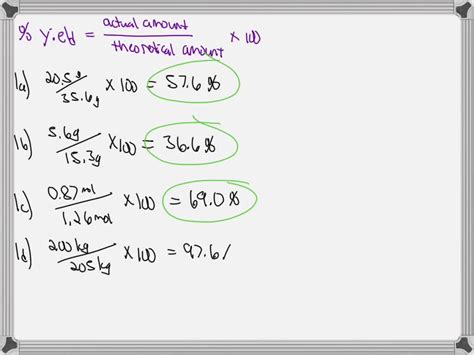 % yield = actual amount / theoretical amount × 100
1a) 20.5g / 35.6g × 100 = 57.6%
1b) 5.6g / 15.3g × 100 = 36.6%
1c) 0.87 mol / 1.26 mol × 100 = 69.0%
1d) 200 kg / 205 kg × 100 = 97.6/